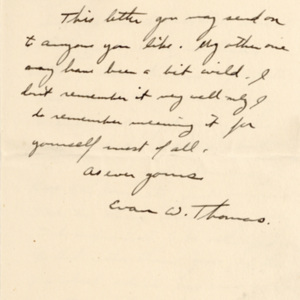 This letter you may send on
to anyone you like. My other one
may have been a bit wild. I
don't remember it very well only I
do remember meaning it for
yourself most of all.
As ever yours
Evan W. Thomas.